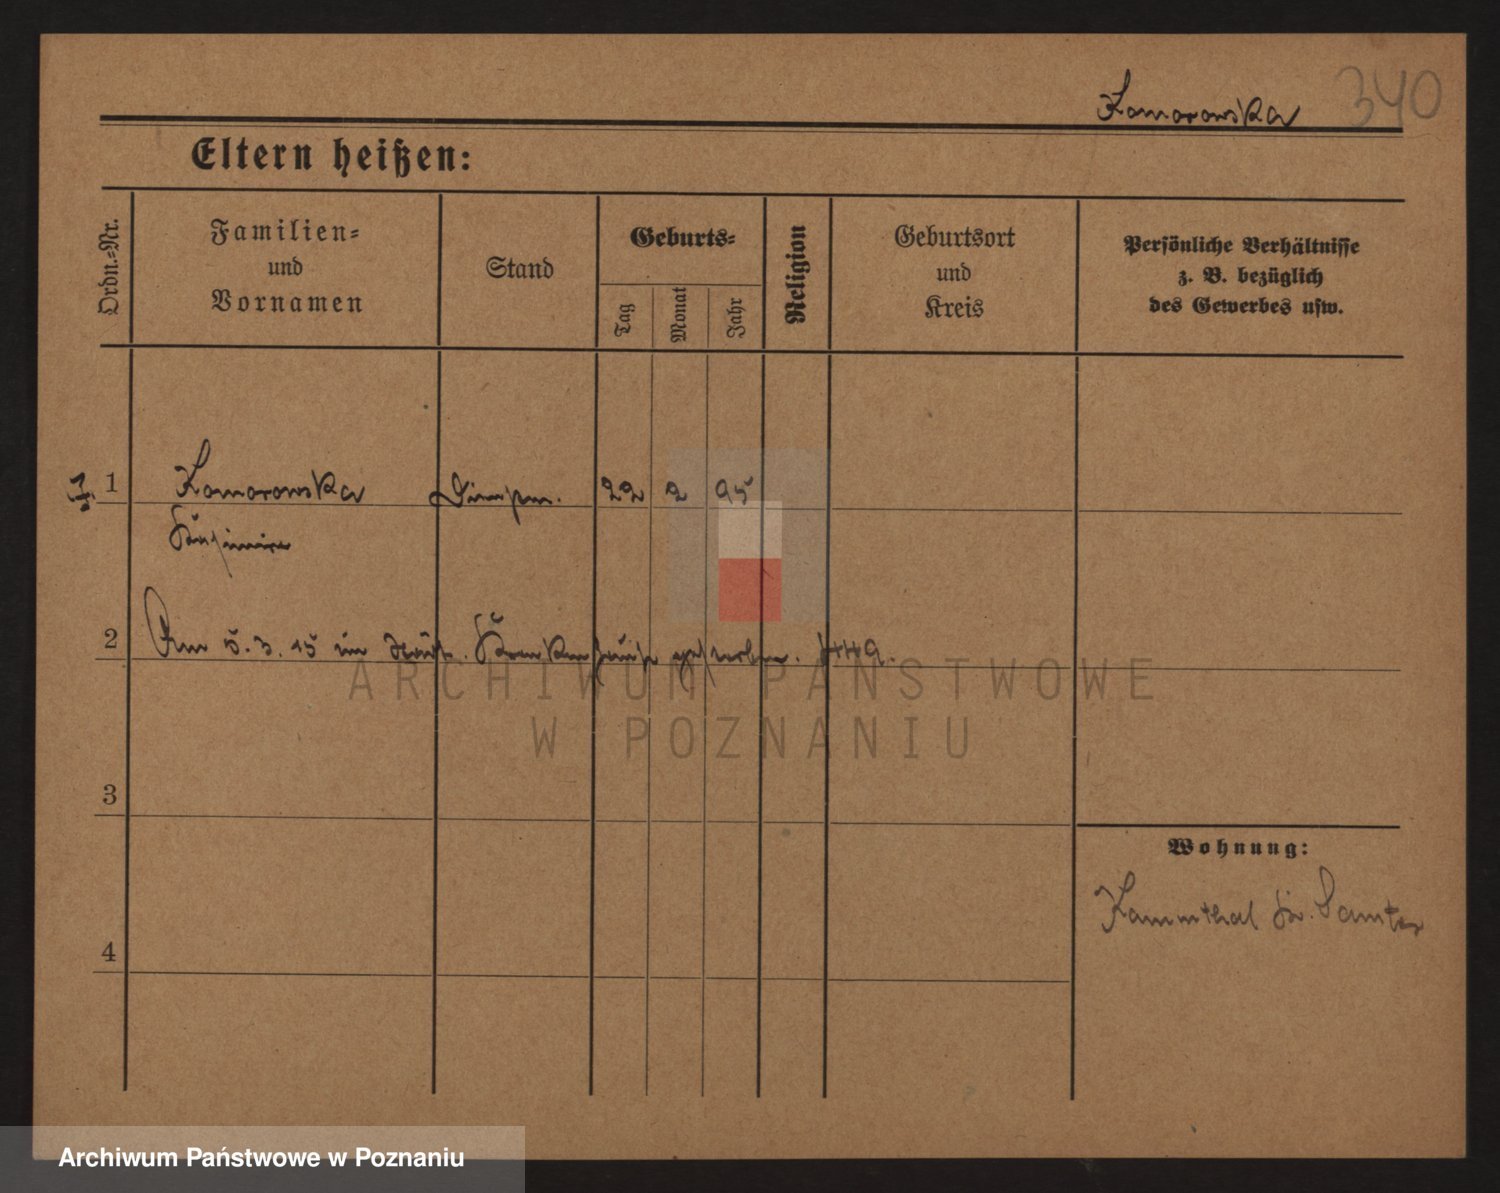 Komorowska 340
Eltern heißen:
Ordn.-Nr.
Familien-
und
Vornamen
Stand
Geburts-
Tag
Monat
Jahr
Religion
Geburtsort
und
Kreis
Persönliche Verhältnisse
z. B. bezüglich
des Gewerbes usw.
1 Komorowska 22 2 95
2 Am 5. 3. 15 im städt. Krankenhause gestorben. 449.
ARCHIWUM PAŃSTWOWE
W POZNANIU
3
Wohnung:
Kammthal Kr. Samter
4
Archiwum Państwowe w Poznaniu